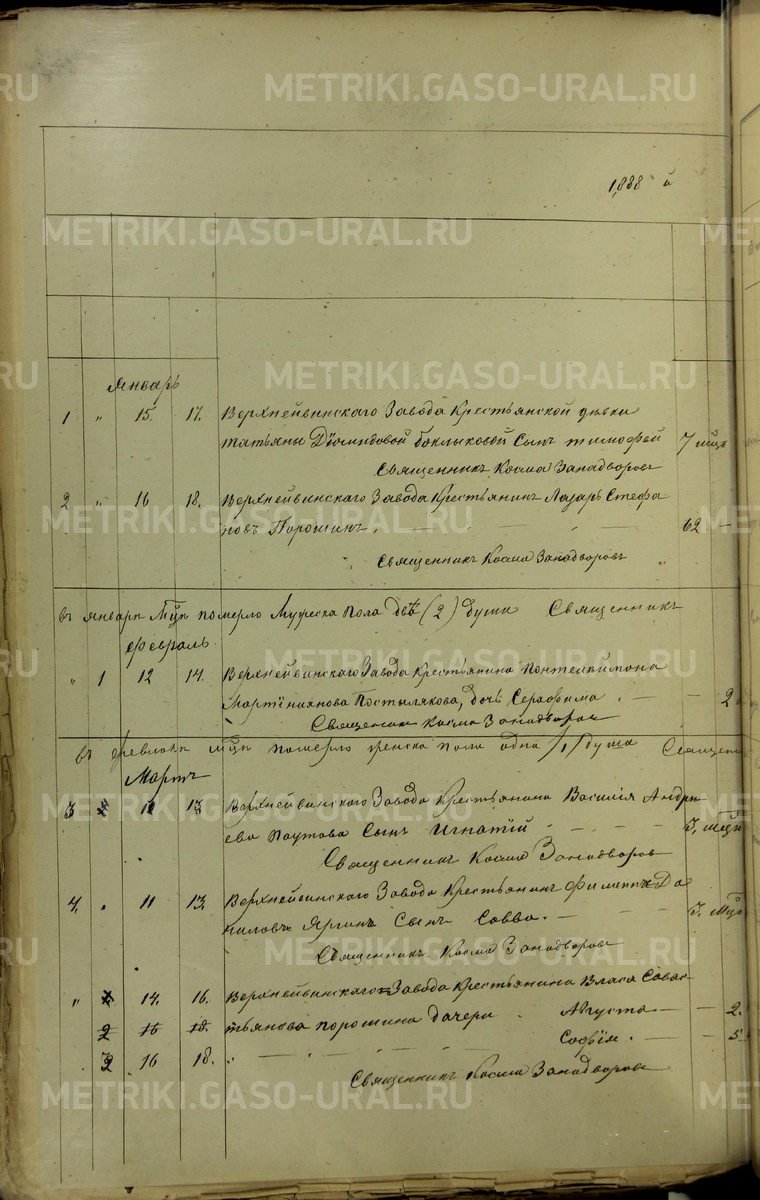 METRIKI.GASO-URAL.RU
1888 й
Январь
1 " 15. 17. Верхнейвинскаго Завода Крестьянской дњвки
татьяны Дїомидовой боклыковой Сынъ тимофей 7 мцъ
Священникъ Косма Занадворовъ
2 " 16 18. Верхнейвинскаго Завода Крестьянинъ Лазарь Стефа
новъ Порошинъ. 62
Священникъ Косма Занадворовъ
въ январѣ Мцѣ померло Мужеска пола двѣ (2) души Священникъ
февраль
" 1 12 14. Верхнейвинскаго Завода Крестьянина Пантелеймона
Мартинианова Постылякова, дочь Серафима. 2
Священникъ Косма Занадворовъ
въ февралѣ мцѣ померло женска пола одна /1/ душа Священни
Мартъ
3 11 13 Верхнейвинскаго Завода Крестьянина Василія Андре
ева Паутова Сынъ Игнатїй 3. мцѣ
Священникъ Косма Занадворовъ
4. " 11 13. Верхнейвинскаго Завода Крестьянинъ филиппъ Да
ниловъ Яргинъ Сынъ Савва. 3. мцъ
Священникъ Косма Занадворовъ
" 14. 16. Верхнейвинскаго Завода Крестьянина Власа Савас
2 16 18. тьянова порошина дачери Августа 2.
Софїя. 5
3 16 18.
Священникъ Косма Занадворовъ